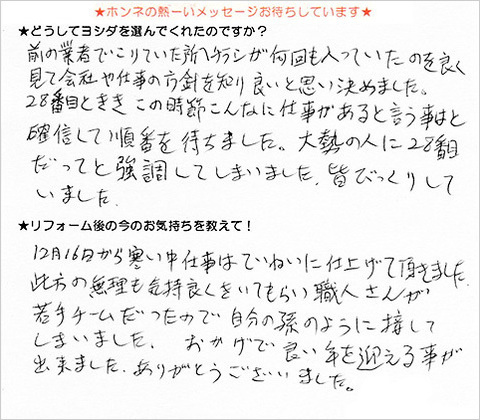 ★ホンネの熱ーいメッセージお待ちしています★
★どうしてヨシダを選んでくれたのですか？
前の業者でこりていた所へチラシが何回も入っていたのを良く
見て会社や仕事の方針を知り良いと思い決めました。
28番目ときき この時節こんなに仕事があると言う事はと
確信して順番を待ちました。大勢の人に28番目
だってと強調してしまいました、皆びっくりして
いました、
★リフォーム後の今のお気持ちを教えて！
12月16日から寒い中仕事はていねいに仕上げて頂きました、
此方の無理も気持良くきいてもらい職人さんが
若手チームだったので自分の孫のように接して
しまいました、 おかげで良い年を迎える事が
出来ました、ありがとうございました。